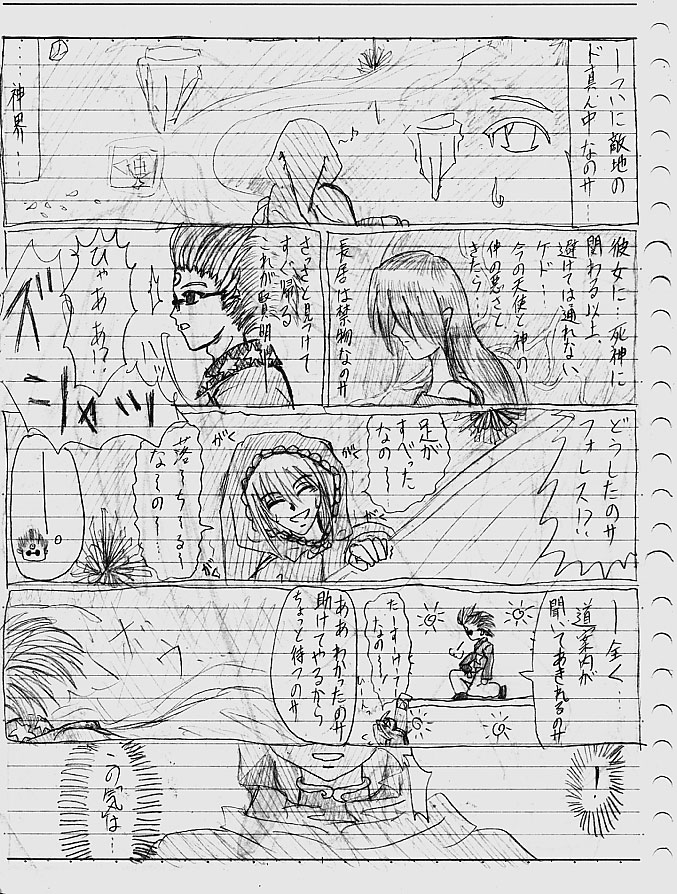 ーついに敵地の
ド真ん中なのサ…
……神界……
彼女に…死神に
関わる以上、
避けては通れない
ケド…
今の天使と神の
仲の悪さし
きたら…
長居は禁物なのサ
さっさと見つけて
すぐ帰る
これが賢明…
ひゃああ!?
ズ
ニャッ
どうしたのサ
フォレス!?
足が
すべった
なの〜
がく
がく
がく
がく
落〜ち〜る〜
な〜の〜…
ー全く……
道案内が
聞いてあきれるのサ
たーすーけーて
なの〜!
ああわかったのサ
助けてやるから
ちょっと待つのサ
!
の気は…